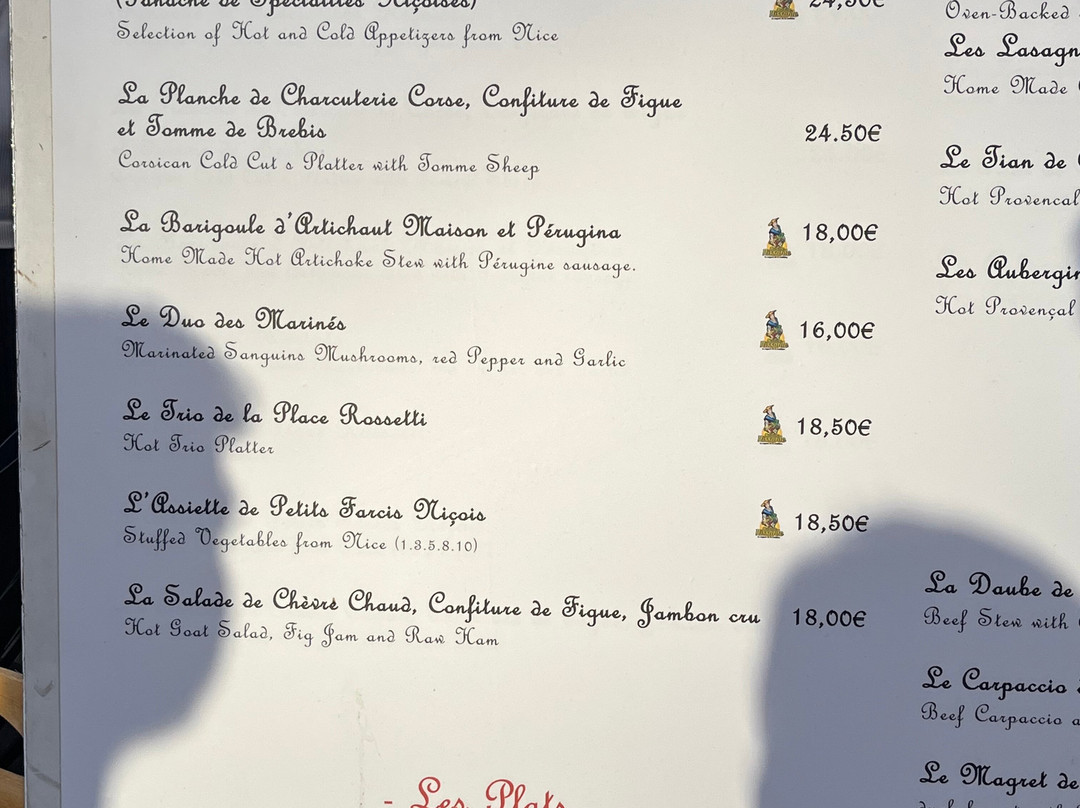 (Panaché de Spécialités Niçoises) 24,50€
Selection of Hot and Cold Appetizers from Nice
La Planche de Charcuterie Corse, Confiture de Figue
et Tomme de Brebis 24.50€
Corsican Cold Cut s Platter with Tomme Sheep
La Barigoule d'Artichaut Maison et Pérugina 18,00€
Home Made Hot Artichoke Stew with Pérugine sausage.
Le Duo des Marinés 16,00€
Marinated Sanguins Mushrooms, red Pepper and Garlic
Le Trio de la Place Rossetti 18,50€
Hot Trio Platter
L'Assiette de Petits Farcis Niçois 18,50€
Stuffed Vegetables from Nice (1.3.5.8.10)
La Salade de Chèvre Chaud, Confiture de Figue, Jambon cru 18,00€
Hot Goat Salad, Fig Jam and Raw Ham
- Les Plats
Oven-Backed
Les Lasagn
Home Made
Le Tian de
Hot Provencal
Les Aubergin
Hot Provençal
La Daube de
Beef Stew with
Le Carpaccio
Beef Carpaccio a
Le Magret de